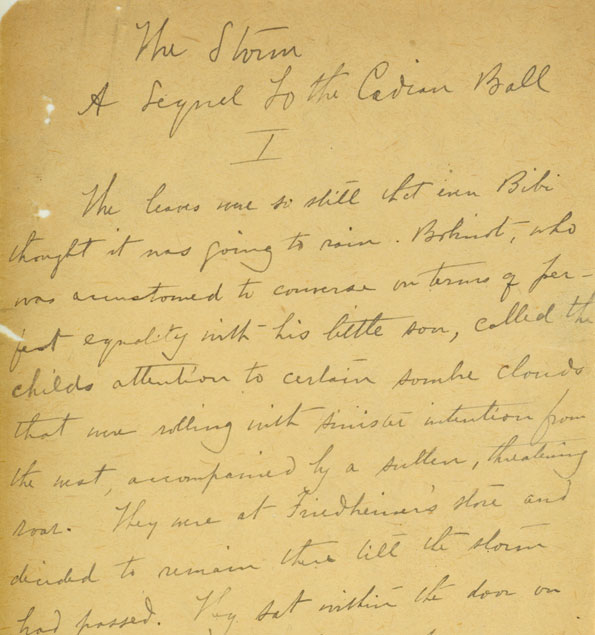 The Storm
A Sequel to the Cadian Ball
I
The leaves were so still that even Bibi
thought it was going to rain. Bobinôt, who
was accustomed to converse on terms of per-
fect equality with his little son, called the
childs attention to certain sombre clouds
that were rolling with sinister intention from
the west, accompanied by a sullen, threatening
roar. They were at Friedheimer's store and
decided to remain there till the storm
had passed. They sat within the door on